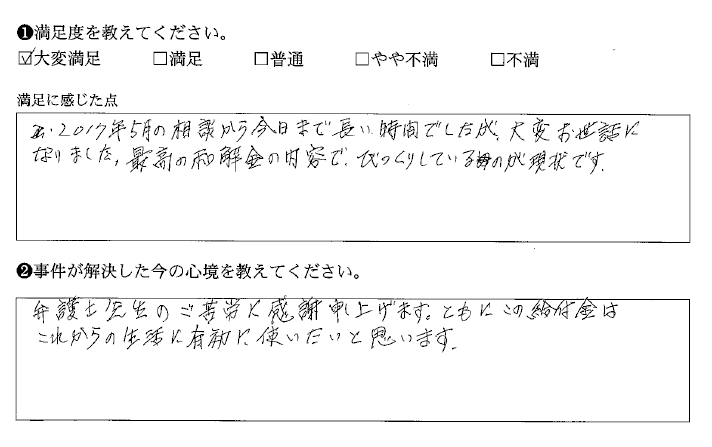 ❶満足度を教えてください。
☑大変満足 □満足 □普通 □やや不満 □不満
満足に感じた点
2017年5月の相談から今日まで長い時間でしたが、大変お世話に
なりました。最高の和解金の内容で、びっくりしているのが現状です。
❷事件が解決した今の心境を教えてください。
弁護士先生のご苦労に感謝申し上げます。ともにこの給付金は
これからの生活に有効に使いたいと思います。